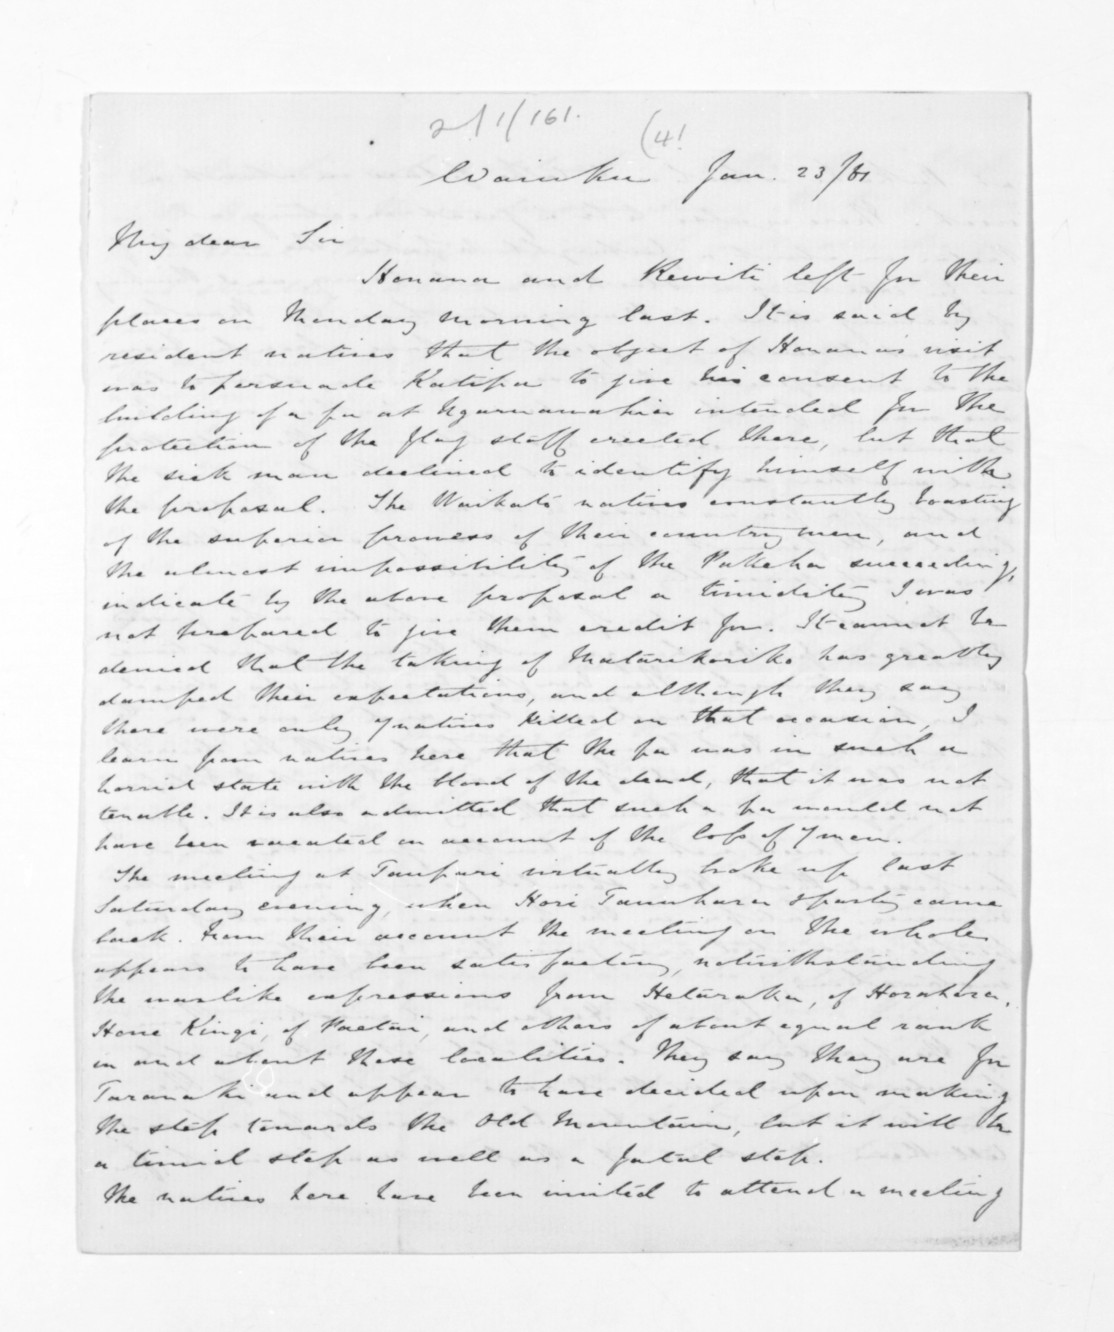 (4!
Waiuku Jan. 23/61
My dear Sir
Honana and Rewiti left for their
places on Monday morning last. It is said by
resident natives that the object of Honana's visit
was to persuade Katipa to give his consent to the
building of a pa at Ngaruawahia intended for the
protection of the flag staff erected there, but that
the sick man declined to identify himself with
the proposal. The Waikato natives constantly boasting
of the superior prowess of their countrymen, and
the almost impossibility of the Pakeha succeeding,
indicate by the above proposal a timidity I was
not prepared to give them credit for. It cannot be
denied that the taking of Matarikoriko has greatly
damped their expectations, and although they say
there were only 7 natives killed on that occasion, I
learn from natives here that the pa was in such a
horrid state with the blood of the dead, that it was not
tenable. It is also admitted that such a pa would not
have been vacated on account of the loss of 7 men.
The meeting at Taupari virtually broke up last
Saturday evening, when Hori Tauroa's party came
back. From their account the meeting on the whole
appears to have been satisfactory, notwithstanding
the warlike expressions from Hetaraka, of Horahora,
Hone Kingi, of Paetai, and others of about equal rank
in and about these localities. They say they are for
Taranaki and appear to have decided upon making
the step towards the Old Mountain, but it will be
a timid step as well as a fatal step.
The natives here have been invited to attend a meeting